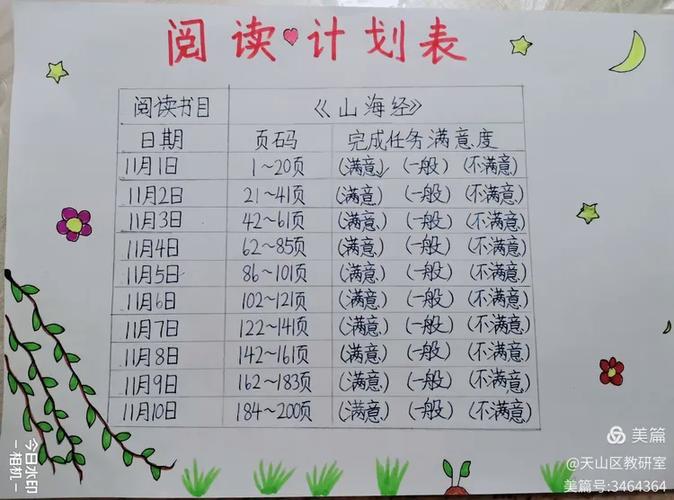 阅读计划表
阅读书目 《山海经》
日期 页码 完成任务满意度
11月1日 1~20页 (满意) (一般) (不满意)
11月2日 21~41页 (满意) (一般) (不满意)
11月3日 42~61页 (满意) (一般) (不满意)
11月4日 62~85页 (满意) (一般) (不满意)
11月5日 86~101页 (满意) (一般) (不满意)
11月6日 102~121页 (满意) (一般) (不满意)
11月7日 122~141页 (满意) (一般) (不满意)
11月8日 142~161页 (满意) (一般) (不满意)
11月9日 162~183页 (满意) (一般) (不满意)
11月10日 184~200页 (满意) (一般) (不满意)
今日水印
-相机-
美篇
@天山区教研室
美篇号:3464364